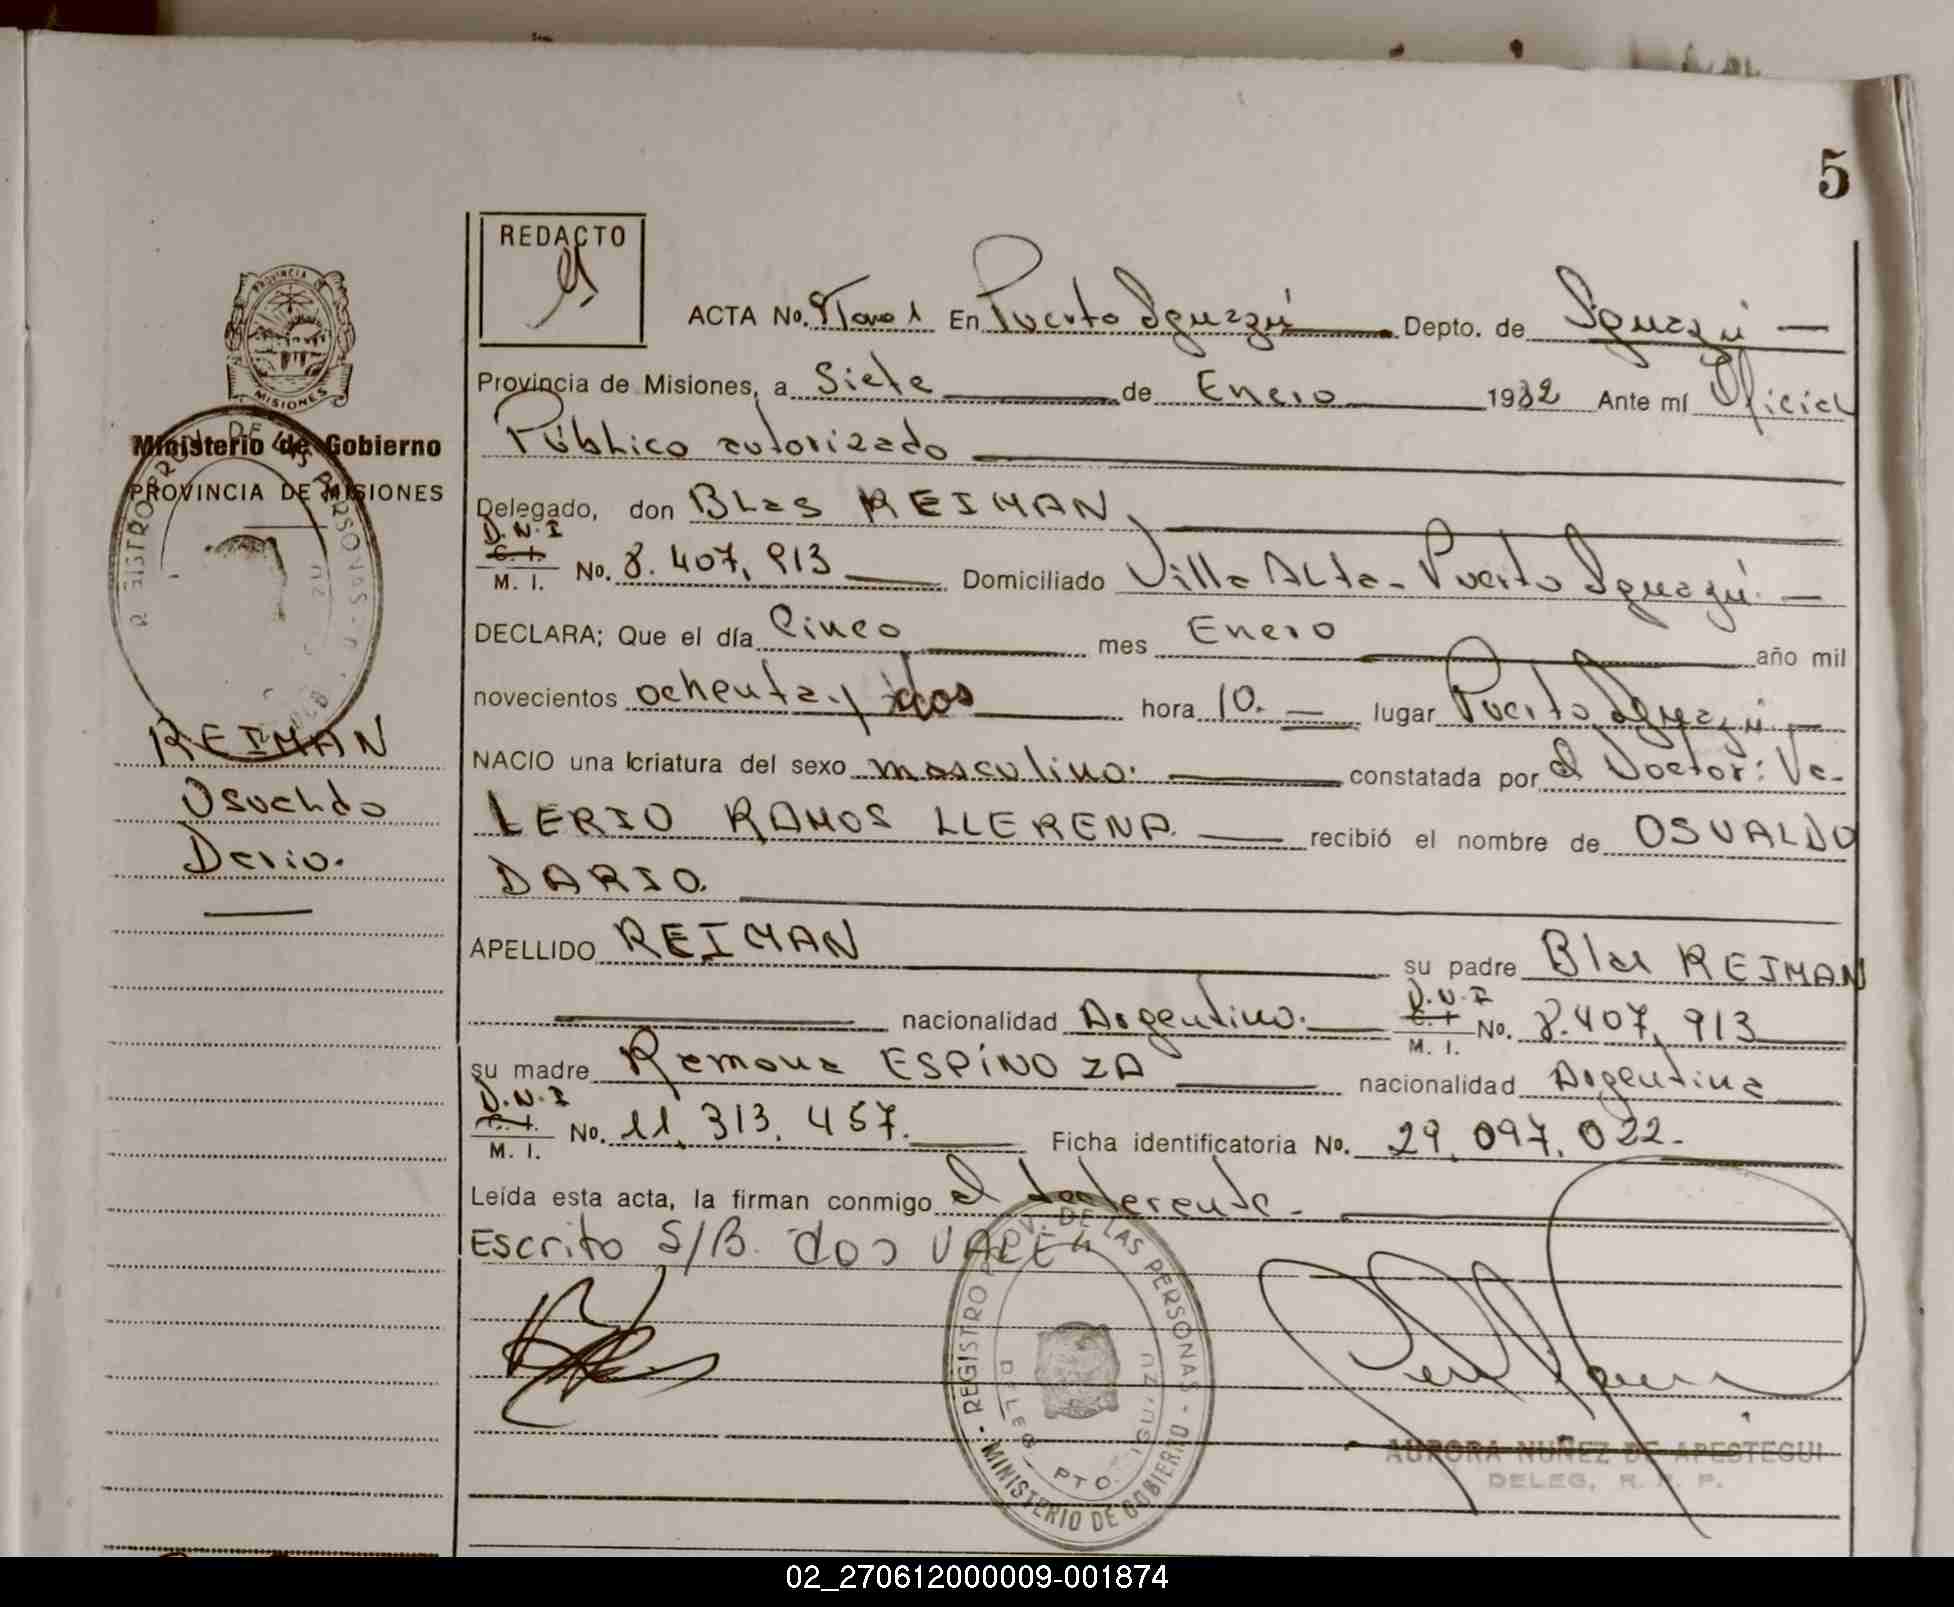 5
REDACTO
ACTA No. 9 Tomo 1 En Puerto Iguazú Depto. de Iguazú
Provincia de Misiones, a Siete de Enero 1982 Ante mí Oficial
Público autorizado
Delegado, don Blas REIMAN
D.N.I
C. I.
M. I. No. 8.407,913 Domiciliado Villa Alta - Puerto Iguazú. -
DECLARA; Que el día Cinco mes Enero año mil
novecientos ochenta y dos hora 10. - lugar Puerto Iguazú. -
NACIO una criatura del sexo masculino. constatada por el Doctor: Va-
LERIO RAMOS LLERENA. recibió el nombre de OSVALDO
DARIO.
APELLIDO REIMAN su padre Blas REIMAN
nacionalidad Argentino. D.N.I C. I. M. I. No. 8.407,913
su madre Ramona ESPINOZA nacionalidad Argentina
D.N.I
C. I.
M. I. No. 11.313.457. Ficha identificatoria No. 29.097.022.-
Leída esta acta, la firman conmigo el declarante.
Escrito S/B. dos VALE
MISIONES
Ministerio de Gobierno
PROVINCIA DE MISIONES
REIMAN
Osvaldo
Dario.
REGISTRO PROV. DE LAS PERSONAS - MINISTERIO DE GOBIERNO
DELEG. PTO.
AURORA NUÑEZ DE APESTEGUI
DELEG. R. P. P.
02_270612000009-001874